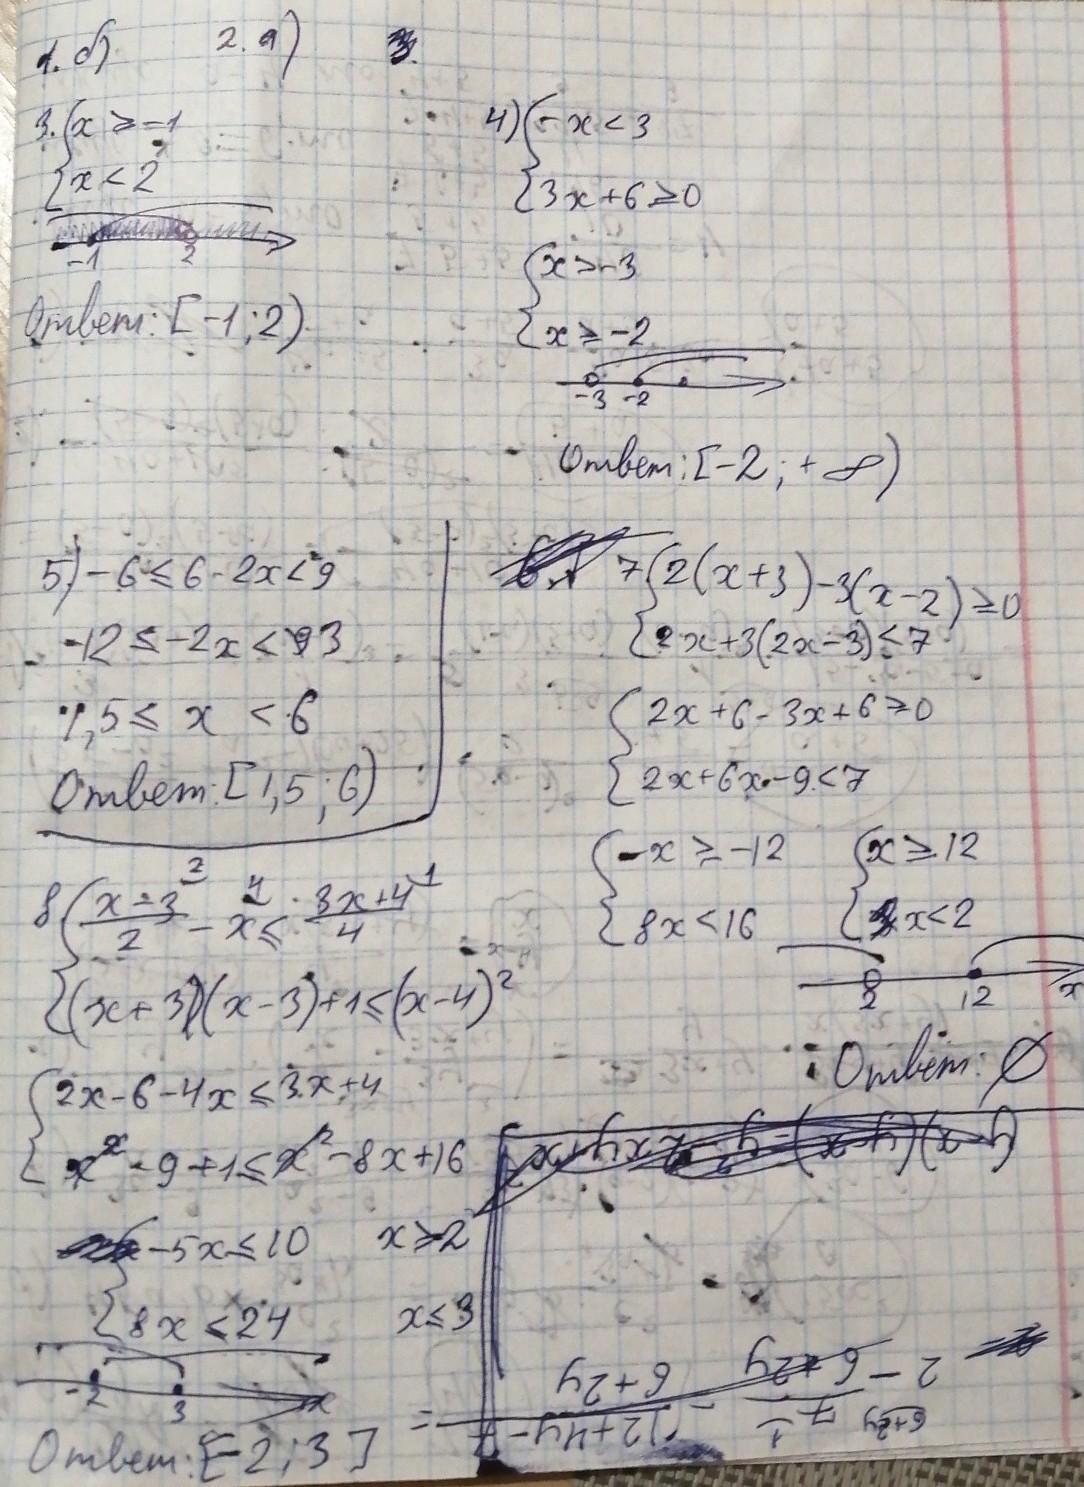 1. б) 2. а)
3. { x ≥ -1
{ x < 2
-1 2
Ответ: [-1; 2)
4) { -x < 3
{ 3x + 6 ≥ 0
{ x > -3
{ x ≥ -2
-3 -2
Ответ: [-2; +∞)
5) -6 ≤ 6 - 2x < 9
-12 ≤ -2x < 3
1,5 ≤ x < 6
Ответ: [1,5; 6)
7 { 2(x+3) - 3(x-2) ≥ 0
{ 2x + 3(2x-3) < 7
{ 2x + 6 - 3x + 6 ≥ 0
{ 2x + 6x - 9 < 7
{ -x ≥ -12 { x ≥ 12
{ 8x < 16 { x < 2
2 12 x
Ответ: ∅
8 { (x-3)/2 ² - x ⁴ ≤ (3x+4)/4 ¹
{ (x+3)(x-3) + 1 ≤ (x-4)²
{ 2x - 6 - 4x ≤ 3x + 4
{ x² - 9 + 1 ≤ x² - 8x + 16
{ -5x ≤ 10 x ≥ -2
{ 8x ≤ 24 x ≤ 3
-2 3 x
Ответ: [-2; 3]